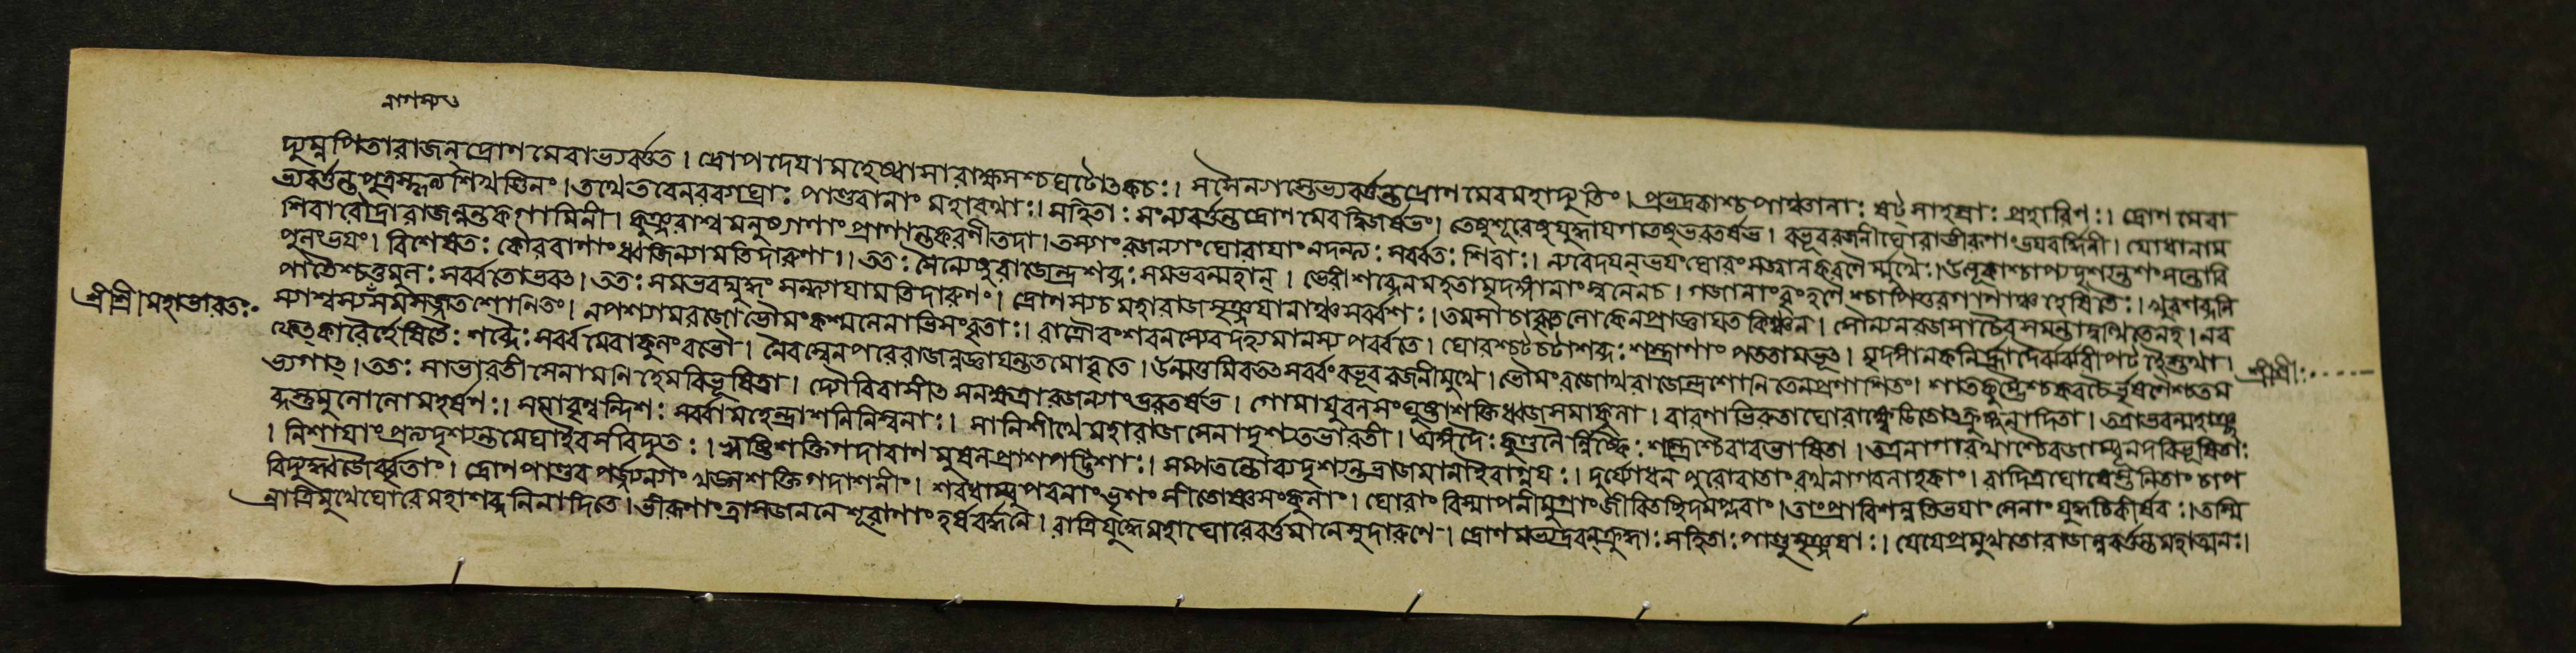 দ্যুম্নপিতারাজন্ দ্রোণমেবাভ্যবর্ত্তত । দ্রৌপদেয়ামহেষ্বাসারাক্ষসশ্চঘটোৎকচঃ । সসৈন্যাস্তেভ্যবর্ত্তন্তদ্রোণমেবমহাদ্যুতিং । প্রভদ্রকাশ্চপাঞ্চালাঃ ষট্ সাহস্রাঃ প্রহারিণঃ । দ্রোণমেবা
ভ্যবর্ত্তন্তপুরস্কৃত্যশিখণ্ডিনং । তথেতরেনরব্যাঘ্রাঃ পাণ্ডবানাং মহারথাঃ । সহিতাঃ সংন্যবর্ত্তন্তদ্রোণমেবদ্বিজর্ষভং । তেষুশূরেষুযুদ্ধায়গতেষুভরতর্ষভ । বভূবরজনীঘোরাভীরূণাংভয়বর্দ্ধিনী । যোধানাম
শিবারৌদ্রারাজন্নন্তকগামিনী । কুঞ্জরাশ্বমনুষ্যাণাং প্রাণান্তকরণীতদা । তস্যাং রজন্যাংঘোরায়াং নদন্ত্যঃ সর্ব্বতঃ শিবাঃ । ন্যবেদয়ন্ ভয়ংঘোরং সজ্বালকবলৈর্ম্মুখৈঃ । উলূকাশ্চাপ্যদৃশ্যন্তশংসন্তোবি
পুলংভয়ং । বিশেষতঃ কৌরবাণাং ধ্বজিন্যামতিদারুণা । ততঃ সৈন্যেষুরাজেন্দ্রশব্দঃ সমভবন্মহান্ । ভেরীশব্দেনমহতামৃদঙ্গানাং স্বনেনচ । গজানাংবৃংহণৈশ্চাপিতুরগাণাঞ্চহেষিতৈঃ । খুরশব্দনি
পাতৈশ্চতুমুলঃ সর্ব্বতোভবৎ । ততঃ সমভবদ্যুদ্ধং সন্ধ্যায়ামতিদারুণং । দ্রোণস্যচমহারাজসৃঞ্জয়ানাঞ্চসর্ব্বশঃ । তমসাচাবৃতেলোকেনপ্রাজ্ঞায়তকিঞ্চন । সৈন্যেনরজসাচৈবসমন্তাদুত্থিতেনহ । নর
শ্রীশ্রীমহাভারতং
স্যাশ্বস্য সমসজ্জতশোণিতং । নপশ্যামরজোভৌমংকশ্মলেনাভিসংবৃতাঃ । রাত্রৌবংশবনস্যেবদহ্যমানস্যপর্ব্বতে । ঘোরশ্চটচটাশব্দঃ শস্ত্রাণাং পততামভূৎ । মৃদঙ্গানকনির্হ্রাদৈর্ঝর্ঝরীপটহৈস্তথা ।
শ্রীশ্রীঃ
ফেৎকারৈর্হ্রেষিতৈঃ শব্দৈঃ সর্ব্বমেবাকুলংবভৌ । নৈবস্বেনপরেরাজন্নজ্ঞায়ন্ততমোবৃতে । উন্মত্তমিবতৎসর্ব্বংবভূবরজনীমুখে । ভৌমংরজোথরাজেন্দ্রশোণিতেনপ্রণাশিতং । শাতকুম্ভৈশ্চকবচৈর্ভূষণৈশ্চতম
ভ্যগাৎ । ততঃ সাভারতীসেনামণিহেমবিভূষিতা । দ্যৌরিবাসীৎসনক্ষত্রারজন্যাংভরতর্ষভ । গোমায়ুবলসংঘুষ্টাশক্তিধ্বজসমাকুলা । বারণাভিরুতাঘোরাক্ষ্বেডিতোৎক্রুষ্টনাদিতা । তত্রাভবন্মহাশ
ব্দস্তুমুলোলোমহর্ষণঃ । সমাবৃণ্বন্দিশঃ সর্ব্বামহেন্দ্রাশনিনিস্বনঃ । সানিশীথেমহারাজসেনাদৃশ্যতভারতী । অঙ্গদৈঃ কুণ্ডলৈর্নিষ্কৈঃ শস্ত্রৈশ্চৈবাবভাষিতা । তত্রনাগারথাশ্চৈবজাম্বূনদবিভূষিতাঃ
। নিশায়াংপ্রত্যদৃশ্যন্তমেঘাইবসবিদ্যুতঃ । ঋষ্টিশক্তিগদাবাণমুষলপ্রাশপট্টিশাঃ । সম্পতন্তোব্যদৃশ্যন্তভ্রাজমানাইবাগ্নয়ঃ । দুর্য্যোধনপুরোবাতাংরথনাগবলাহকাং । বাদিত্রঘোষস্তনিতাং চাপ
বিদ্যুদ্ধ্বজৈর্ব্বৃতাং । দ্রোণপাণ্ডবপর্জ্জন্যাং খড়্গশক্তিগদাশনীং । শরধারাস্ত্রপবনাংভৃশং শীতোষ্ণসংকুলাং । ঘোরাং বিস্মাপনীমুগ্রাংজীবিতচ্ছিদমপ্লবাং । তাংপ্রাবিশন্নতিভয়াং সেনাং যুদ্ধচিকীর্ষবঃ । তস্মি
ন্রাত্রিমুখেঘোরেমহাশব্দনিনাদিতে । ভীরূণাংত্রাসজননেশূরাণাং হর্ষবর্দ্ধনে । রাত্রিযুদ্ধেমহাঘোরেবর্ত্তমানেসুদারুণে । দ্রোণমভ্যদ্রবন্ক্রুদ্ধাঃ সহিতাঃ পাণ্ডুসৃঞ্জয়াঃ । যেযেপ্রমুখতোরাজন্নবর্ত্তন্তমহাত্মনঃ ।